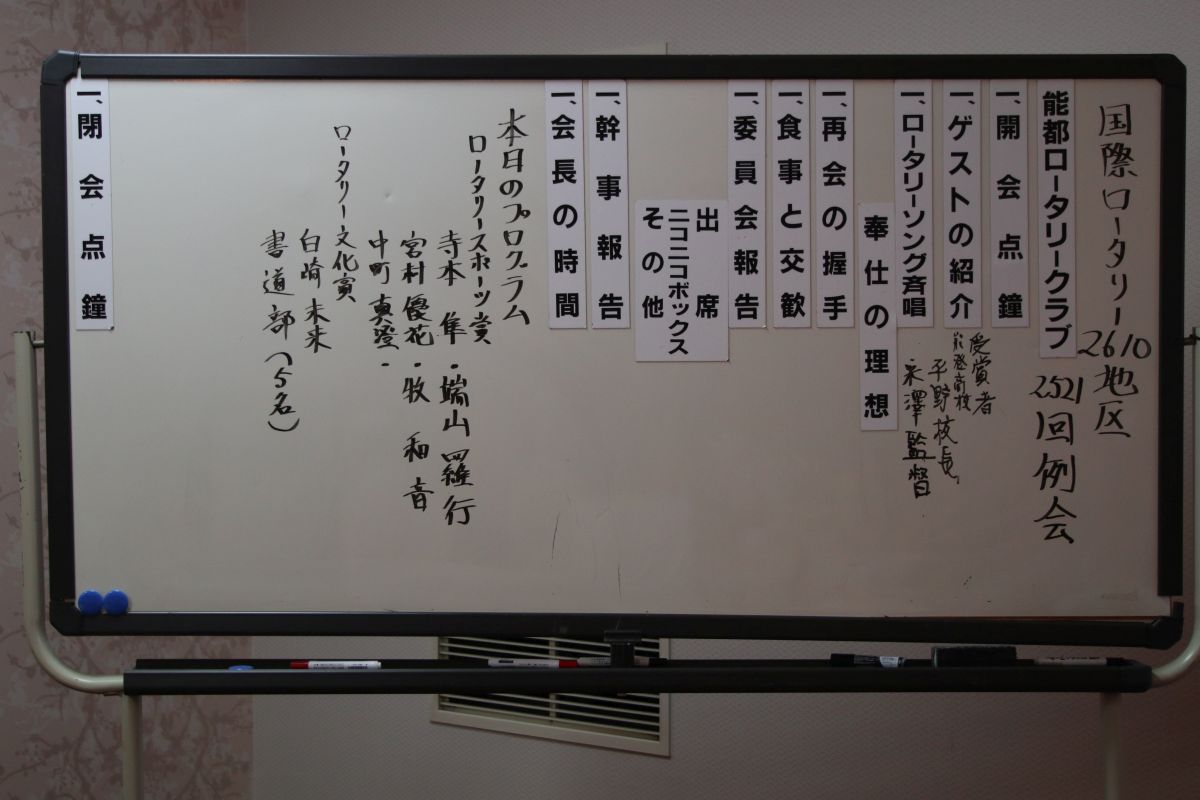 国際ロータリー2610地区
能都ロータリークラブ 2521回例会
一、開会点鐘
一、ゲストの紹介
受賞者
能登高校
平野校長
永澤監督
一、ロータリーソング斉唱
奉仕の理想
一、再会の握手
一、食事と交歓
一、委員会報告
出席
ニコニコボックス
その他
一、幹事報告
一、会長の時間
本日のプログラム
ロータリースポーツ賞
寺本 隼・端山 羅行
宮村 優花・牧 和音
中町 真澄・
ロータリー文化賞
白崎 未来
書道部(5名)
一、閉会点鐘